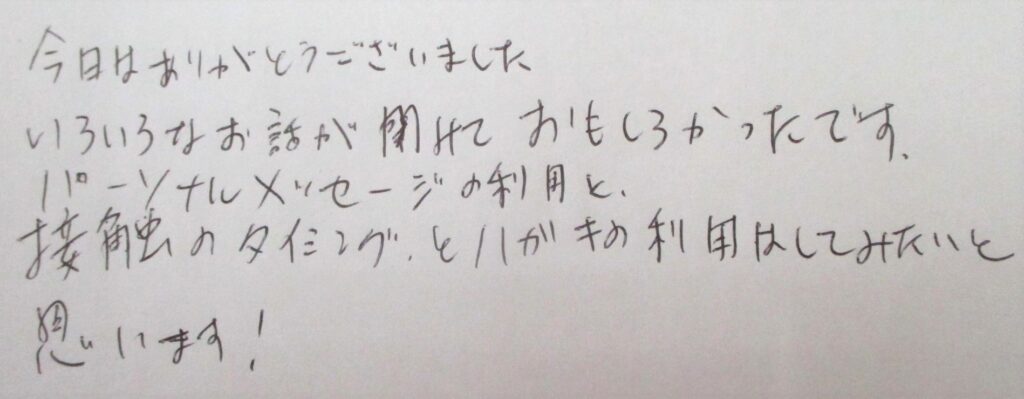 今日はありがとうございました
いろいろなお話が聞けておもしろかったです.
パーソナルメッセージの利用と.
接触のタイミング.とハガキの利用はしてみたいと
思います!